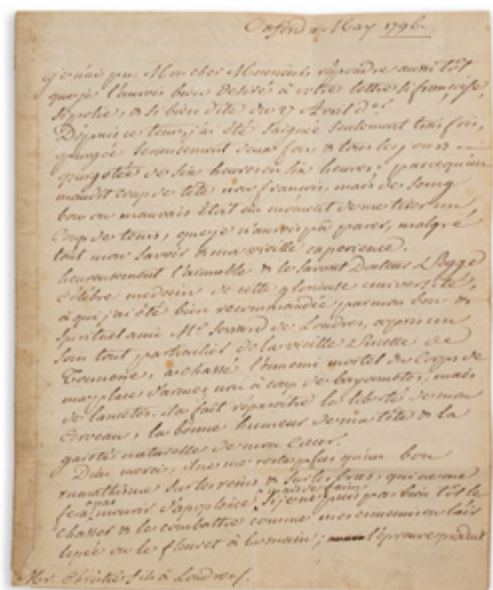 Oxford 11 May 1796.
je n'ai pu Mon cher Monsieur répondre aussi tôt
que je l'aurois bien desiré à votre lettre si françoise,
si polie, & si bien dite du 27 Avril d.er
Depuis ce tems, j'ai été saignée seulement trois fois,
purgée serieusement deux fois, & tous les jours
de six heures en six heures; parcequ'un
maudit coup de tête non françois, mais de sang
bon ou mauvais était au moment de me tirer un
Coup de tems, que je n'aurois pu parer, malgré
tout mon savoir & ma vieille experience.
heureusement l'aimable & le savant Docteur
Célèbre medecin de cette glorieuse université,
à qui j'ai été bien recommandée par mon bon &
spirituel ami Mr. de Londres, a pris un
soin tout particulier de la vieille Pucelle de
Tonnerre, a chassé l'ennemi mortel du Corps de
ma place d'armes non à coup de bayonnetes, mais
de lancetes. Il a fait reparoitre la liberté de mon
Cerveau, la bonne humeur de ma tête & la
gaieté naturelle de mon Coeur.
Dieu merci, il ne me reste plus qu'un bon
rumathisme sur les reins & sur les bras, qui ne me
fera pas mourir d'apoplexie, mais de faim, si je ne puis pas bien tôt le
chasser & le combattre comme mes ennemis
l'épée ou le fleuret à la main; l'épreuve
Mr. Christie fils à Londres.